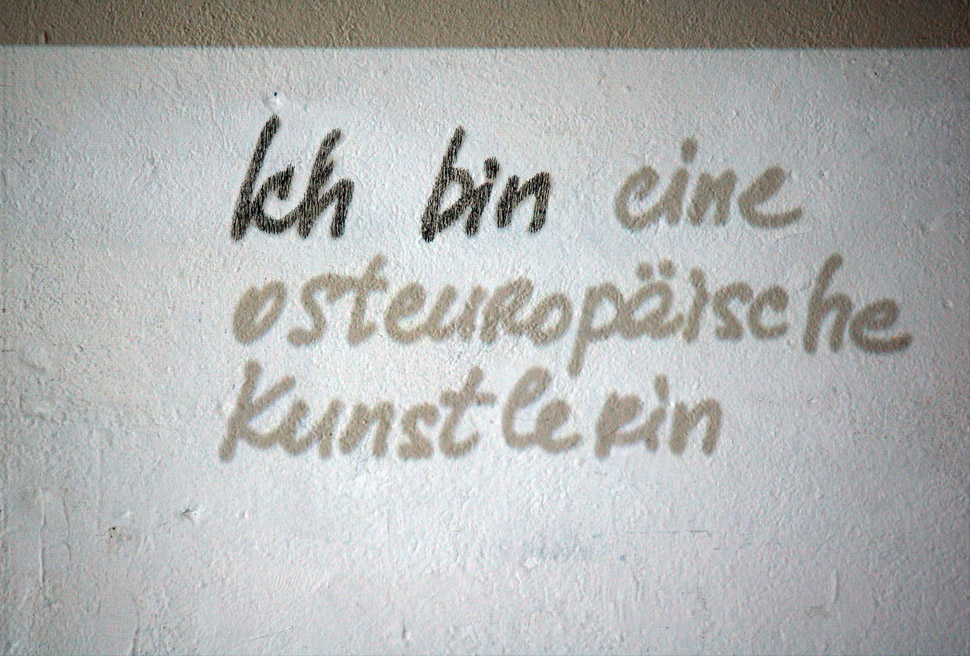 Ich bin eine
osteuropäische
Kunstlerin